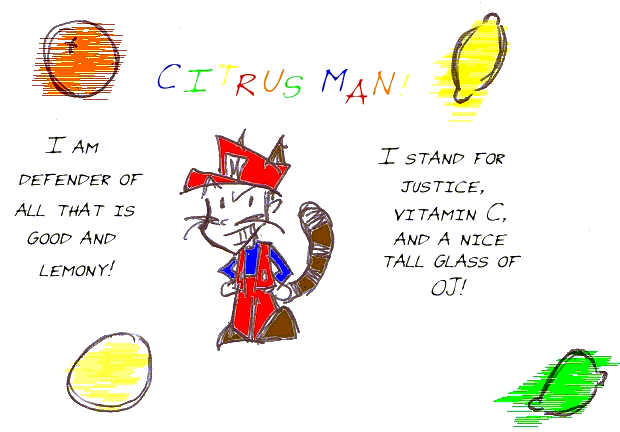 CITRUS MAN!
I AM
DEFENDER OF
ALL THAT IS
GOOD AND
LEMONY!
I STAND FOR
JUSTICE,
VITAMIN C,
AND A NICE
TALL GLASS OF
OJ!
M